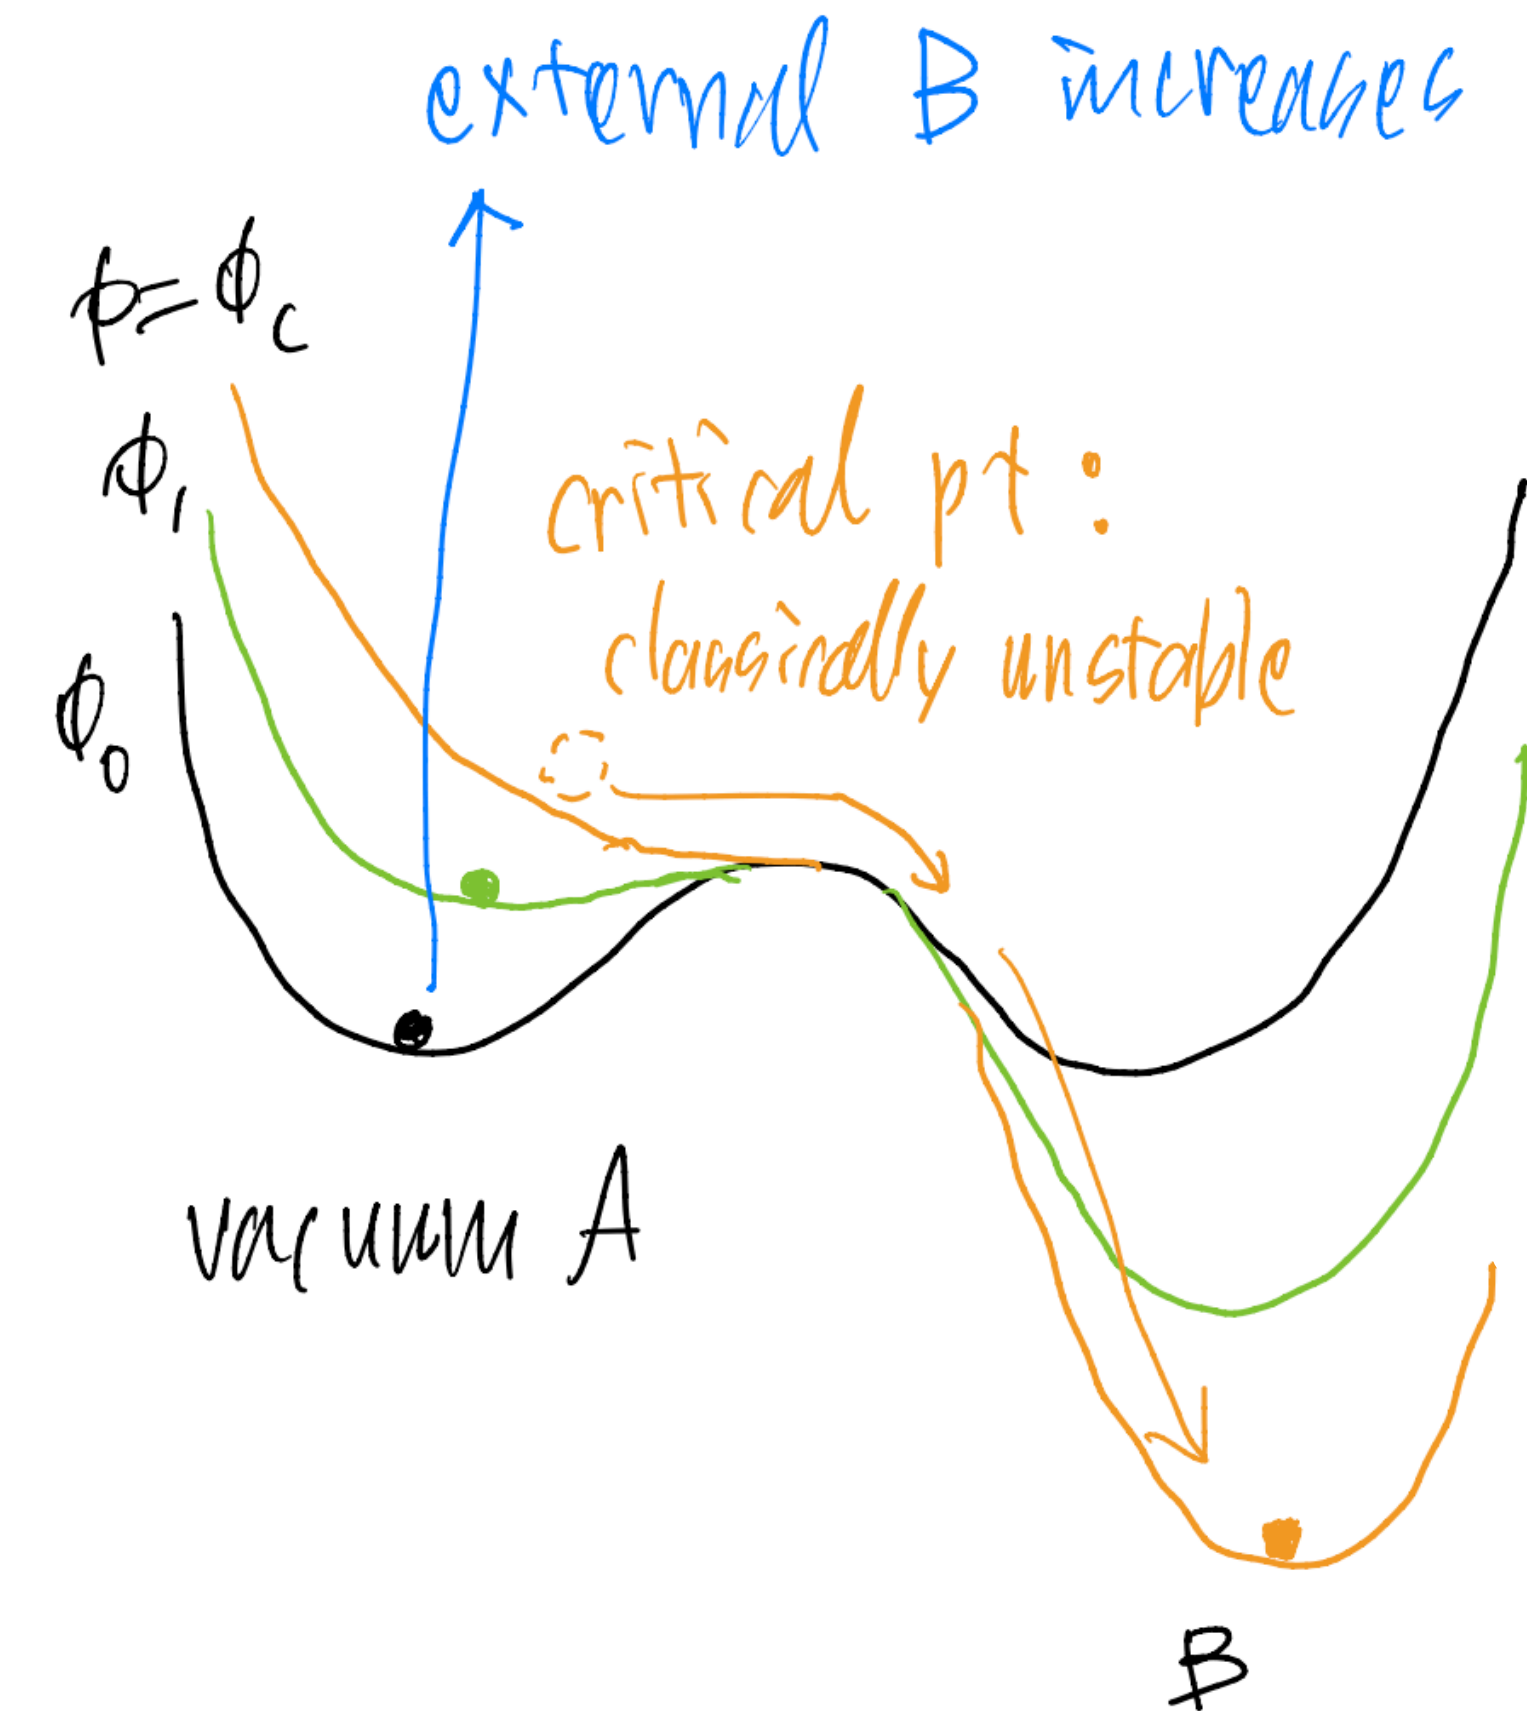 external B increases
ϕ=ϕ_c
ϕ_1
critical pt:
classically unstable
ϕ_0
vacuum A
B